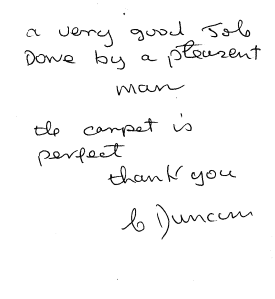 a very good Job
Done by a pleasent
man
the carpet is
perfect
thank you
C Duncan